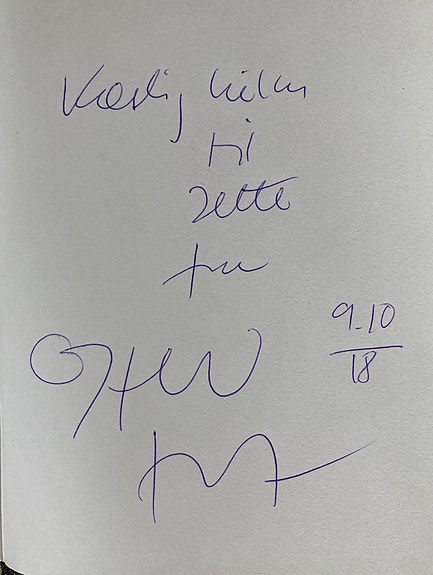 Kærlig hilsn
til
Jette
fra
9.10
18